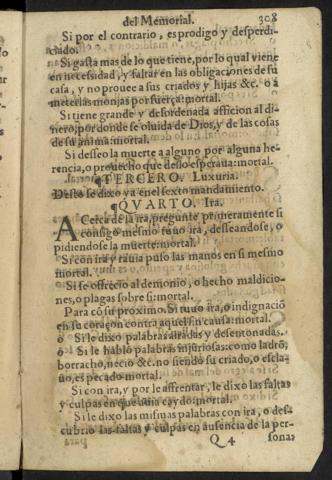 del Memorial. 308
Si por el contrario, es prodigo y desperdi-
ciado.
Si gasta mas de lo que tiene, por lo qual viene
en necessidad, y faltar en las obligaciones de su
casa, y no prouee a sus criados y hijas &c. o a
meterlas monjas por fuerça: mortal.
Si tiene grande y desordenada afficion al di-
nero, por donde se oluida de Dios, y de las cosas
de su anima: mortal.
Si desseo la muerte a alguno por alguna he-
rencia, o prouecho que dello esperaua: mortal.
¶TERCERO. Luxuria.
Desto se dixo ya en el sexto mandamiento.
¶QVARTO. Ira.
ACerca de la ira, pregunte primeramente si
consigo mesmo tuuo ira, desseandose, o
pidiendose la muerte: mortal.
Si con ira y rauia puso las manos en si mesmo
mortal.
Si se ofrecio al demonio, o hecho maldicio-
nes, o plagas sobre si: mortal.
Para cõ su proximo. Si tuuo ira, o indignaciõ
en su coraçon contra aquel sin causa: mortal.
ó Si le dixo palabras airadas y desentonadas.
ó Si le hablo palabras injuriosas: como ladrõ,
borracho, necio &c. no siendo su criado, o escla-
uo, es pecado mortal.
Si con ira, y por le affrentar, le dixo las faltas
y culpas en que auia caydo: mortal.
Si le dixo las mismas palabras con ira, o des-
cubrio las faltas y culpas en ausencia de la per-
Q 4 sona: